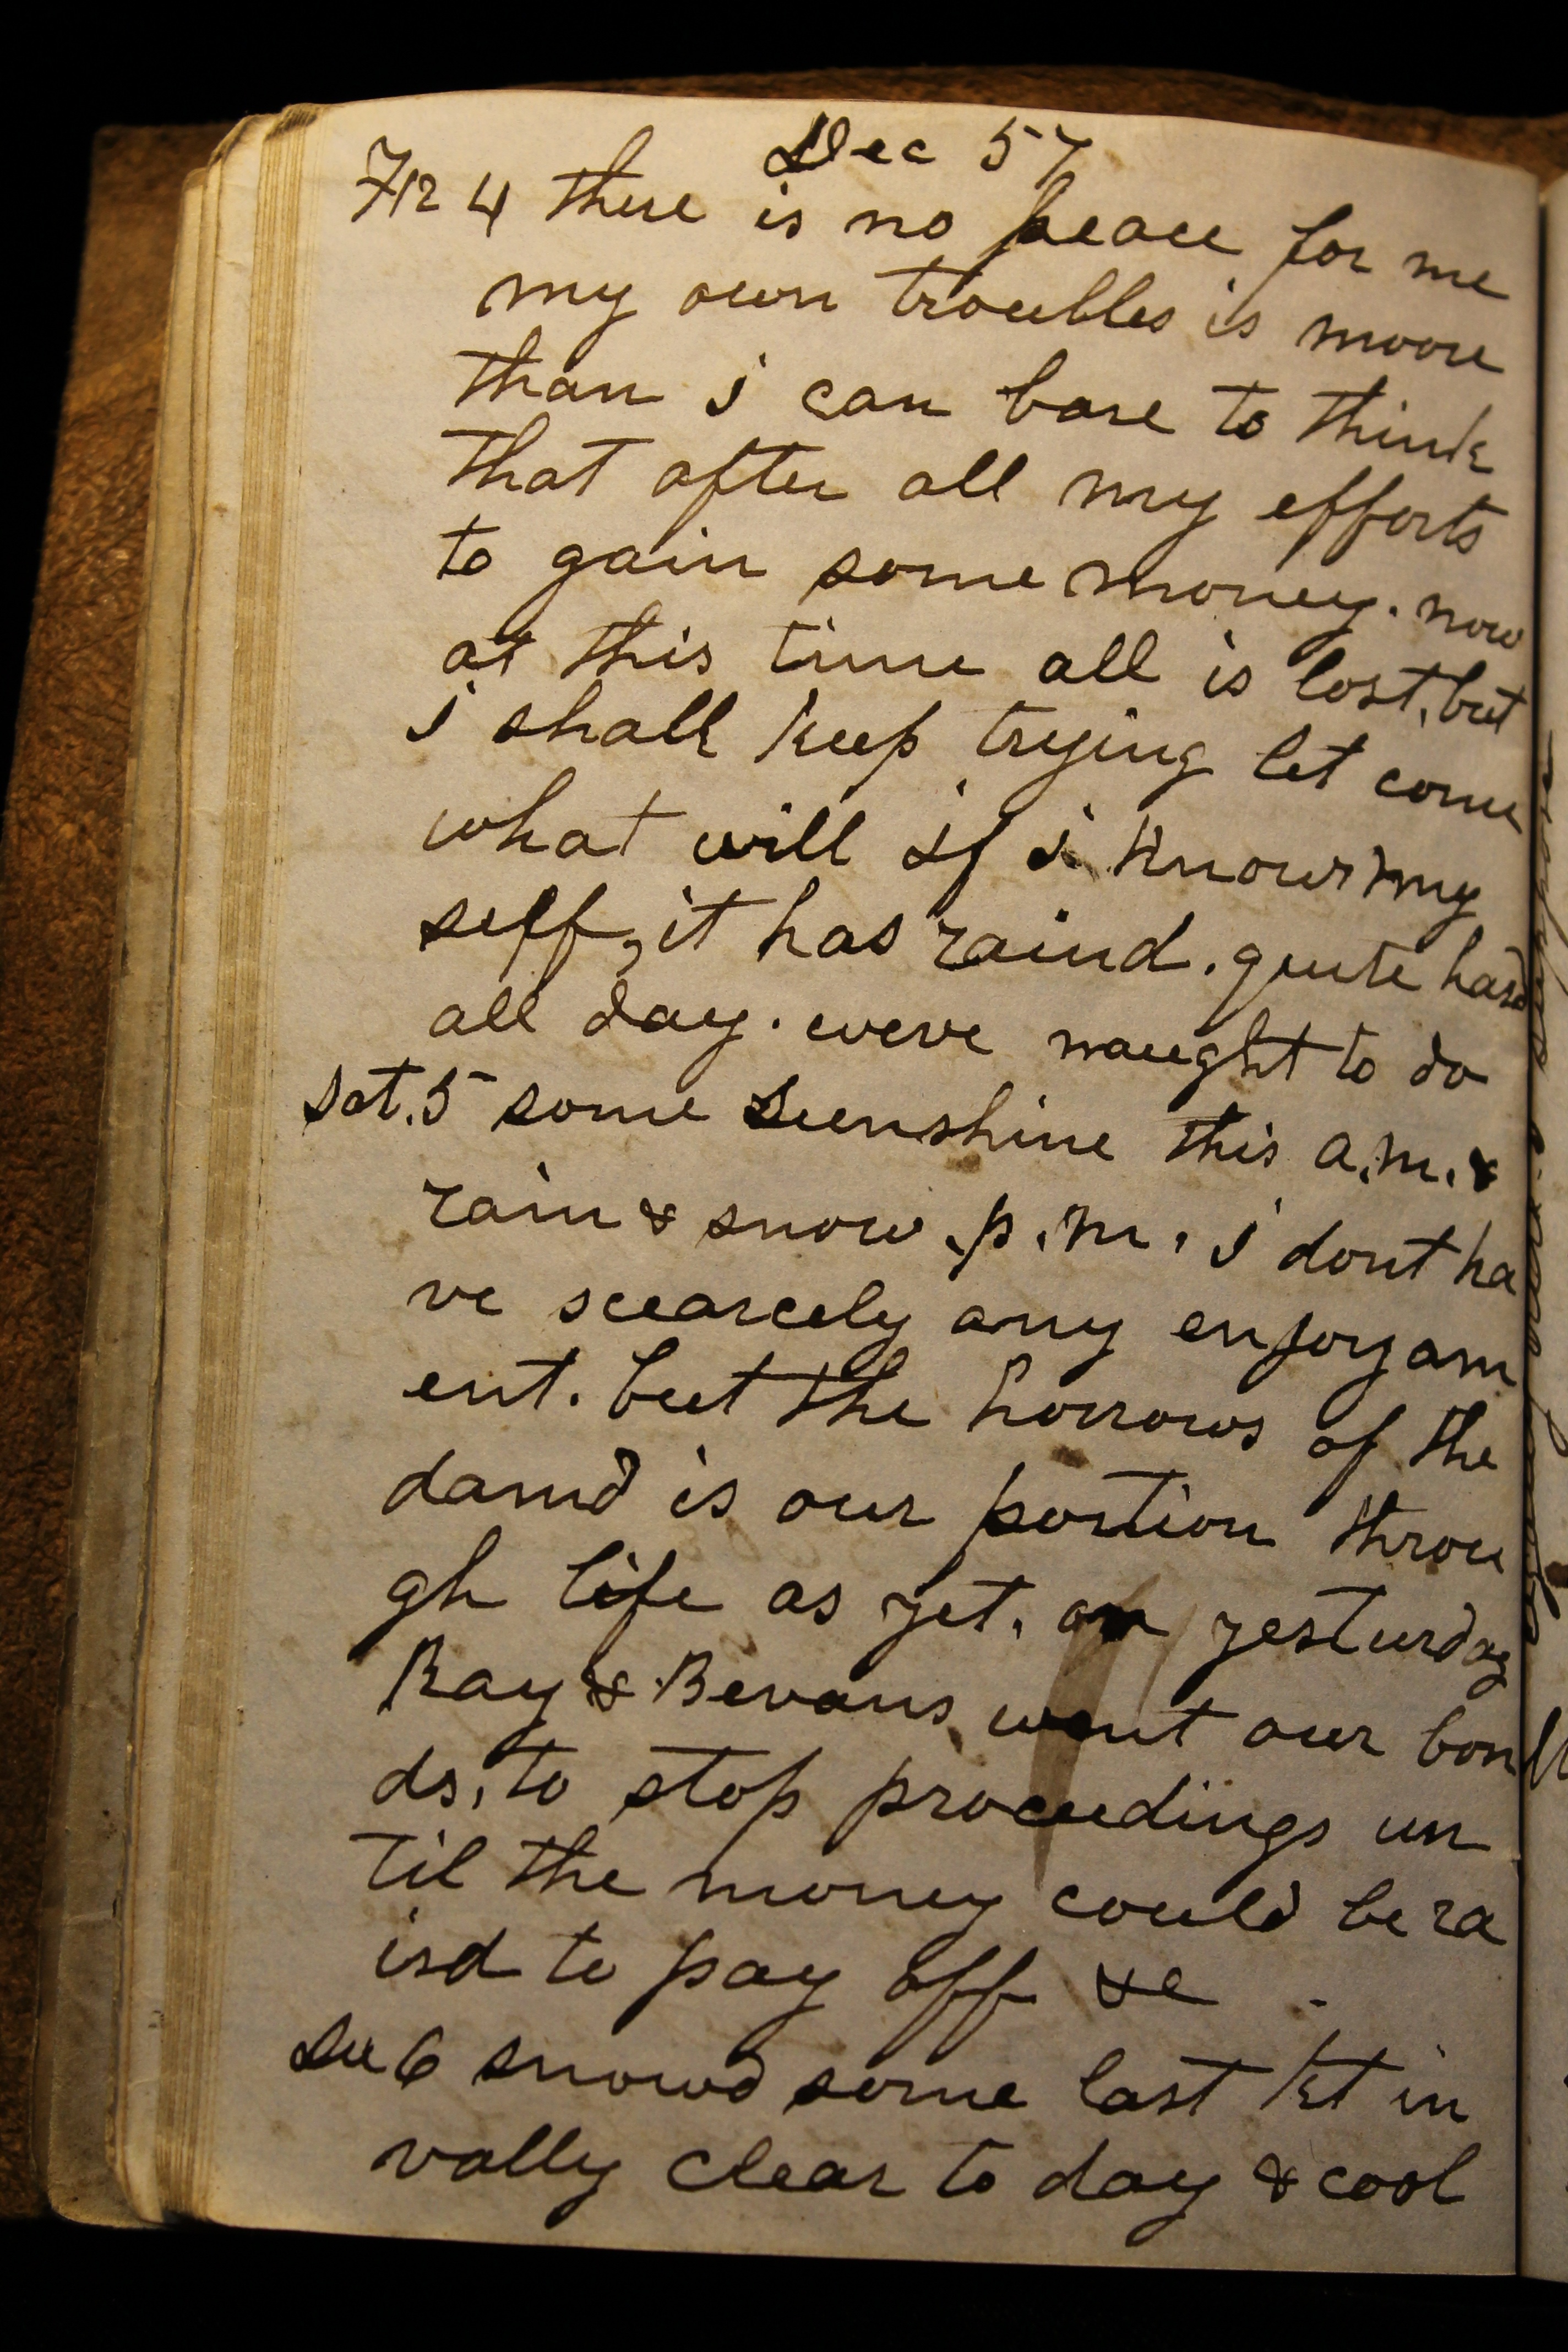 Dec 57
Fr 4 there is no peace for me
my own troubles is moore
than i can bare to think
that after all my efforts
to gain some money. now
at this time all is lost, but
i shall keep trying let come
what will if i know my
self, it has raind. quite hard
all day. weve naught to do
Sat. 5 some sunshine this a.m. &
rain & snow. p.m. i dont ha
ve scearcely any enjoyam
ent. but the horrows of the
damd is our portion throu
gh life as yet. on yesturday
Ray & Bevans went our bon
ds, to stop proceedings un
til the money could be ra
isd to pay off &c
Su 6 snowd some last nt in
vally clear to day & cool